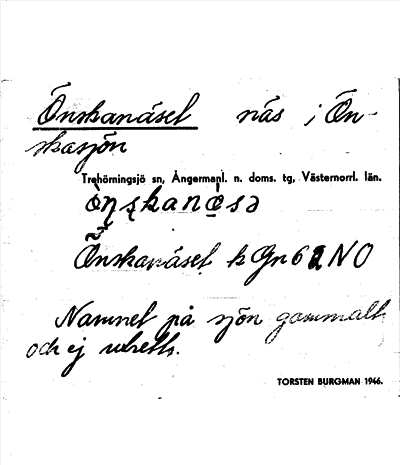 Önskanäset näs i Ön-
skasjön
Trehörningsjö sn, Ångermanl. n. doms. tg, Västernorrl. län.
Önskanäset k Gn 62 NO
Namnet på sjön gammalt
och ej utrett.
TORSTEN BURGMAN 1946.